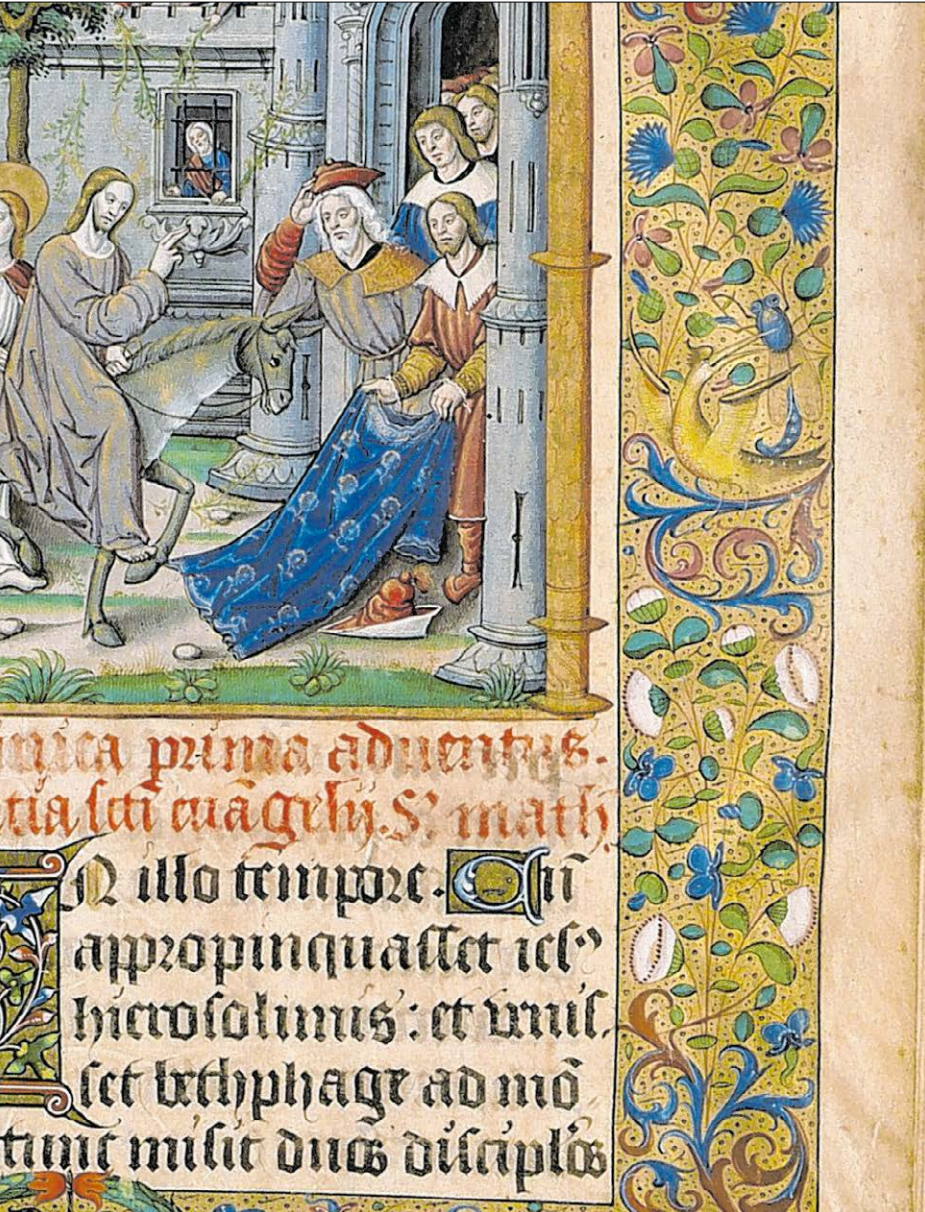 inica prima aduentus.
tia scti euãgelij. S: math
N illo tempore. Cũ
appropinquasset iesꝰ
hierosolimis: et venis
set bethphage ad mõ
tunc misit duos disciplõs